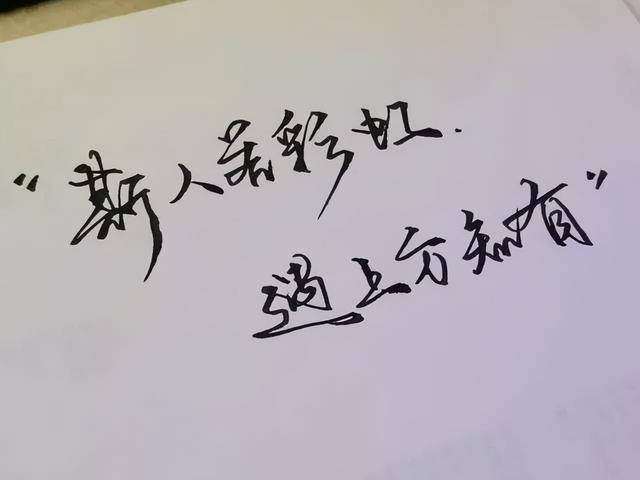 “斯人若彩虹.
遇上方知有”